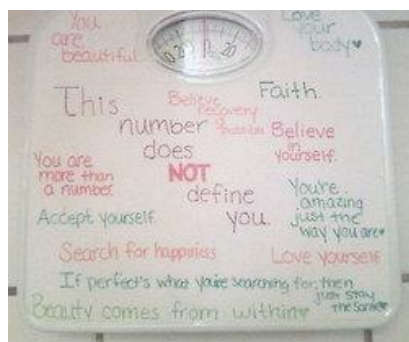 You
are
beautiful
Love
your
body♥
0
20
This
number
does
NOT
define
you.
Believe
recovery
is possible
Faith.
Believe
in
yourself.
You are
more than
a number.
You're
amazing
just the
way you are♥
Accept yourself
Search for happiness
Love yourself
If perfect's what you're searching for, then
just stay
the same♥
Beauty comes from within♥